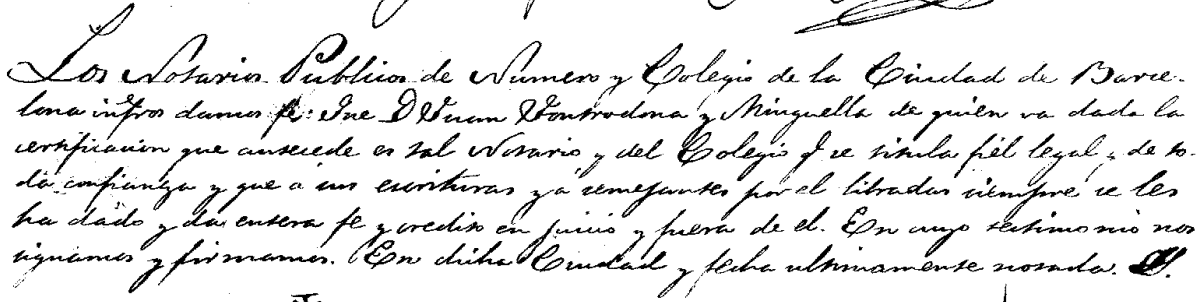 Los Notarios Publicos de Numero y Colegio de la Ciudad de Barce-
lona infros damos fe: Que D Juan Fontrodona y Minguella de quien va dada la
certificacion que antecede es tal Notario y del Colegio q se titula fiel legal y de to-
da confianza y que a sus escrituras y á semejantes por el libradas siempre se les
ha dado y da entera fe y credito en juicio y fuera de el. En cuyo testimonio nos
signamos y firmamos. En dicha Ciudad y fecha ultimamente notada.